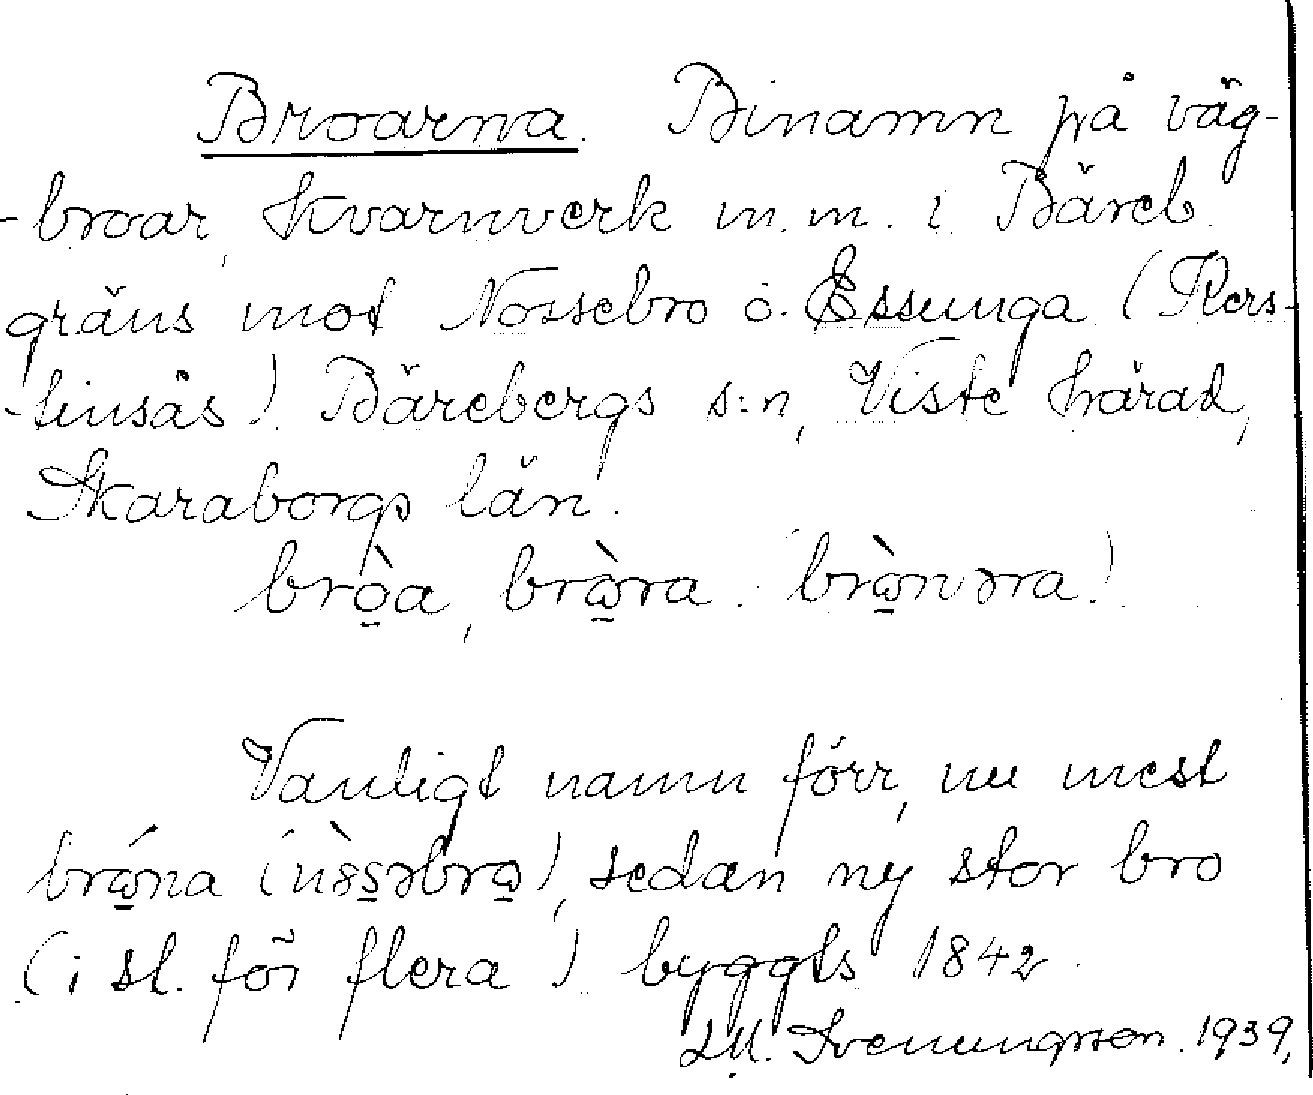 Broarna. Binamn på väg-
-broar, kvarnverk m.m. i Bäreb.
gräns mot Nossebro o. Essunga (Kers-
-tinsås). Bärebergs s:n, Viste härad,
Skaraborgs län.
brò̱a, brὼ̱ra. brὼ̱nəra!
Vanligt namn förr, nu mest
brώ̱na (nòs̱əbrω̱), sedan ny stor bro
(i st. för flera) byggts 1842.
Svenungsson. 1939.